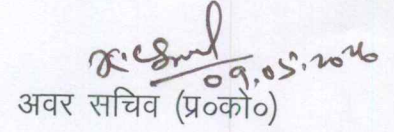 09.05.2020
अवर सचिव (प्र०को०)